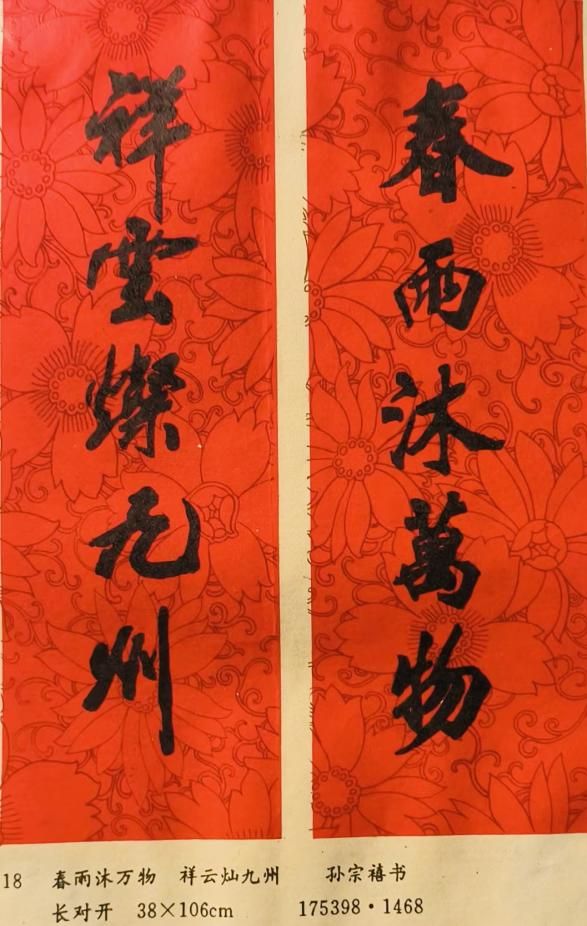 春雨沐萬物
祥雲燦九州
18 春雨沐万物 祥云灿九州 孙宗禧书
长对开 38×106cm 175398·1468